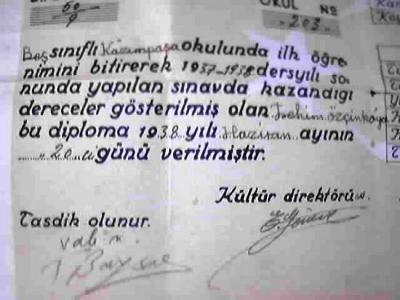 50
9
OKUL No
203
Beş sınıflı Kazımpaşa okulunda ilk öğre
nimini bitirerek 1937-1938 dersyılı so
nunda yapılan sınavda kazandığı
dereceler gösterilmiş olan
bu diploma 1938 yılı Haziran ayının
20 ci günü verilmiştir.
Kültür direktörü
Tasdik olunur.
Vali